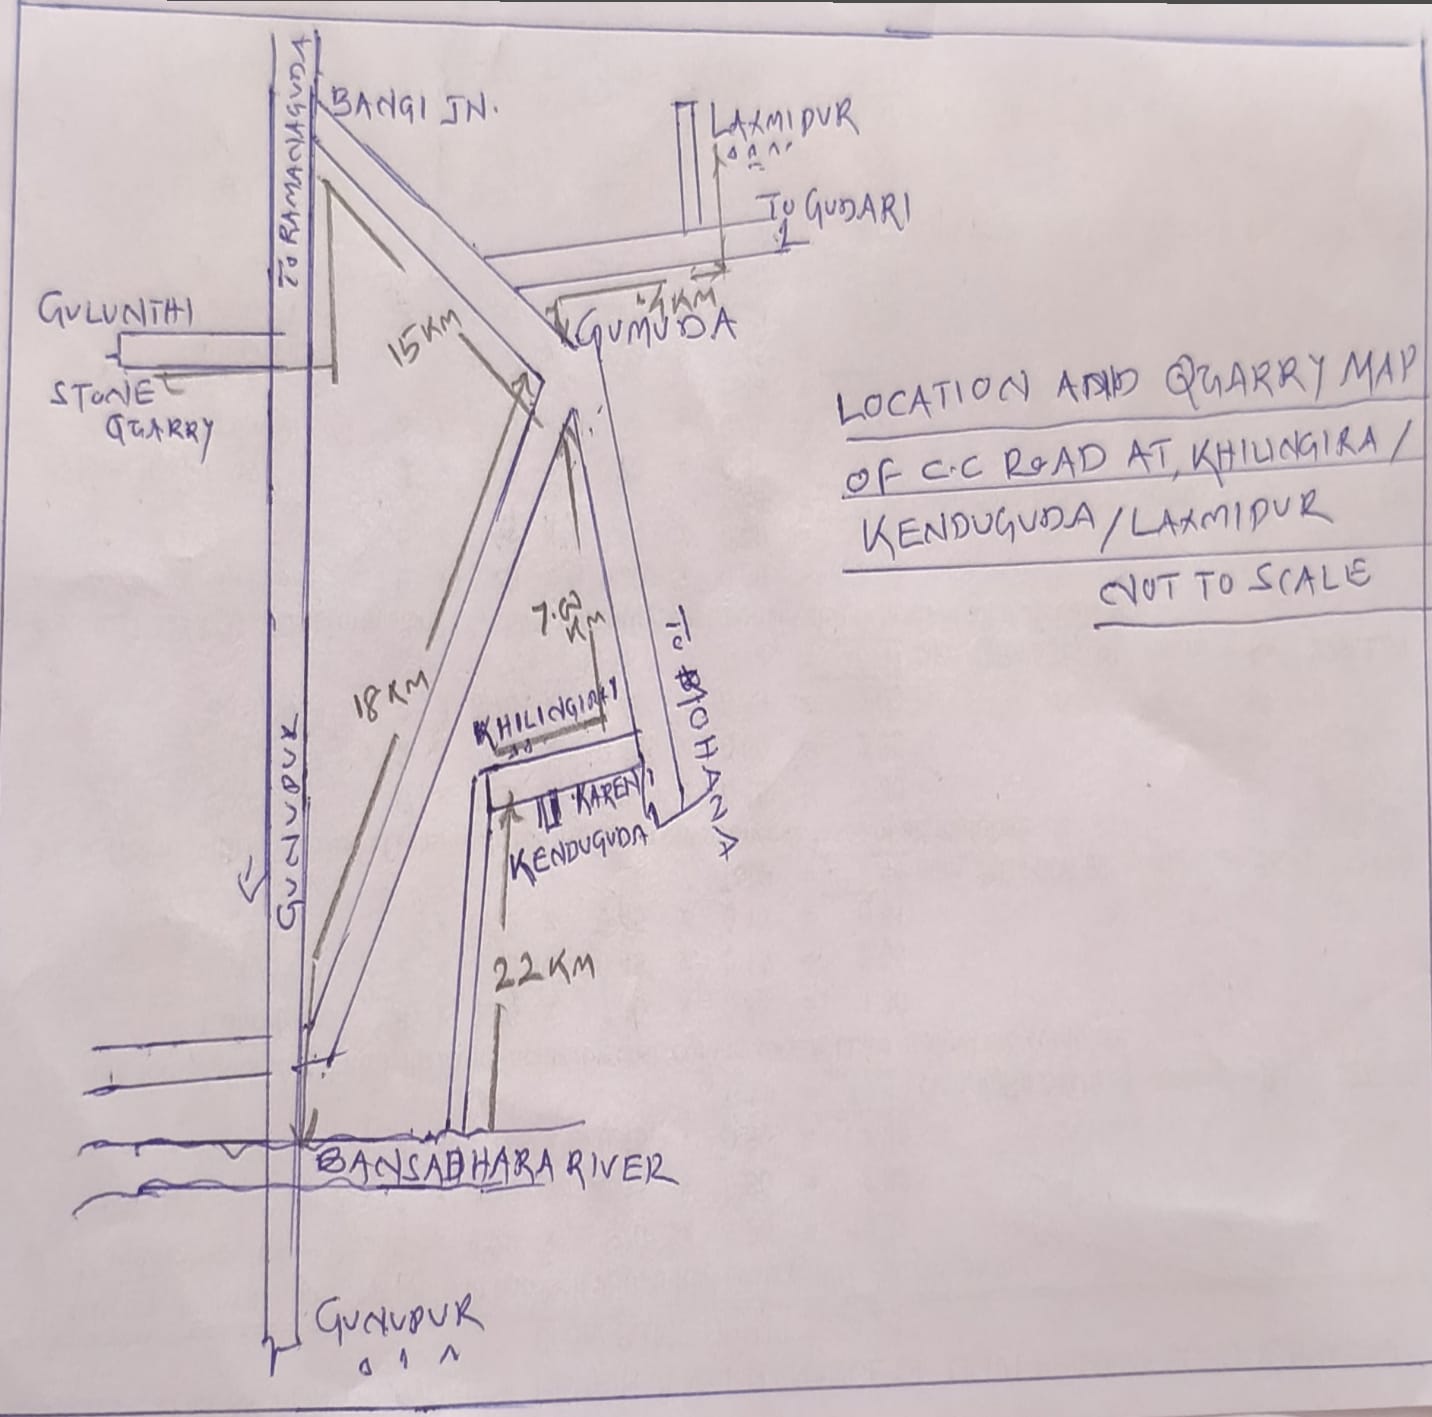 TO RAMANAGUDA
BANGI JN.
LAXMIPUR
TO GUDARI
4KM
GUMUDA
GULUNTHI
STONE
QUARRY
15 KM
LOCATION AND QUARRY MAP
OF C.C ROAD AT, KHILINGIRA/
KENDUGUDA/LAXMIPUR
NOT TO SCALE
KM
18 KM
TO MOHANA
GUNUPUR
KAREN
KENDUGUDA
22 KM
BANSADHARA RIVER
GUNUPUR